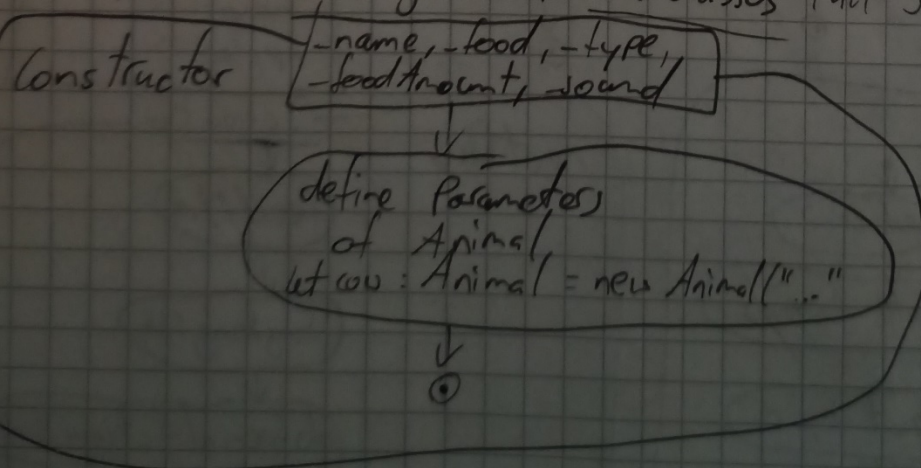 Constructor
-name, -food, -type,
-foodAmount, -sound
define Parameters
of Animal
let cow : Animal = new Animal("..."